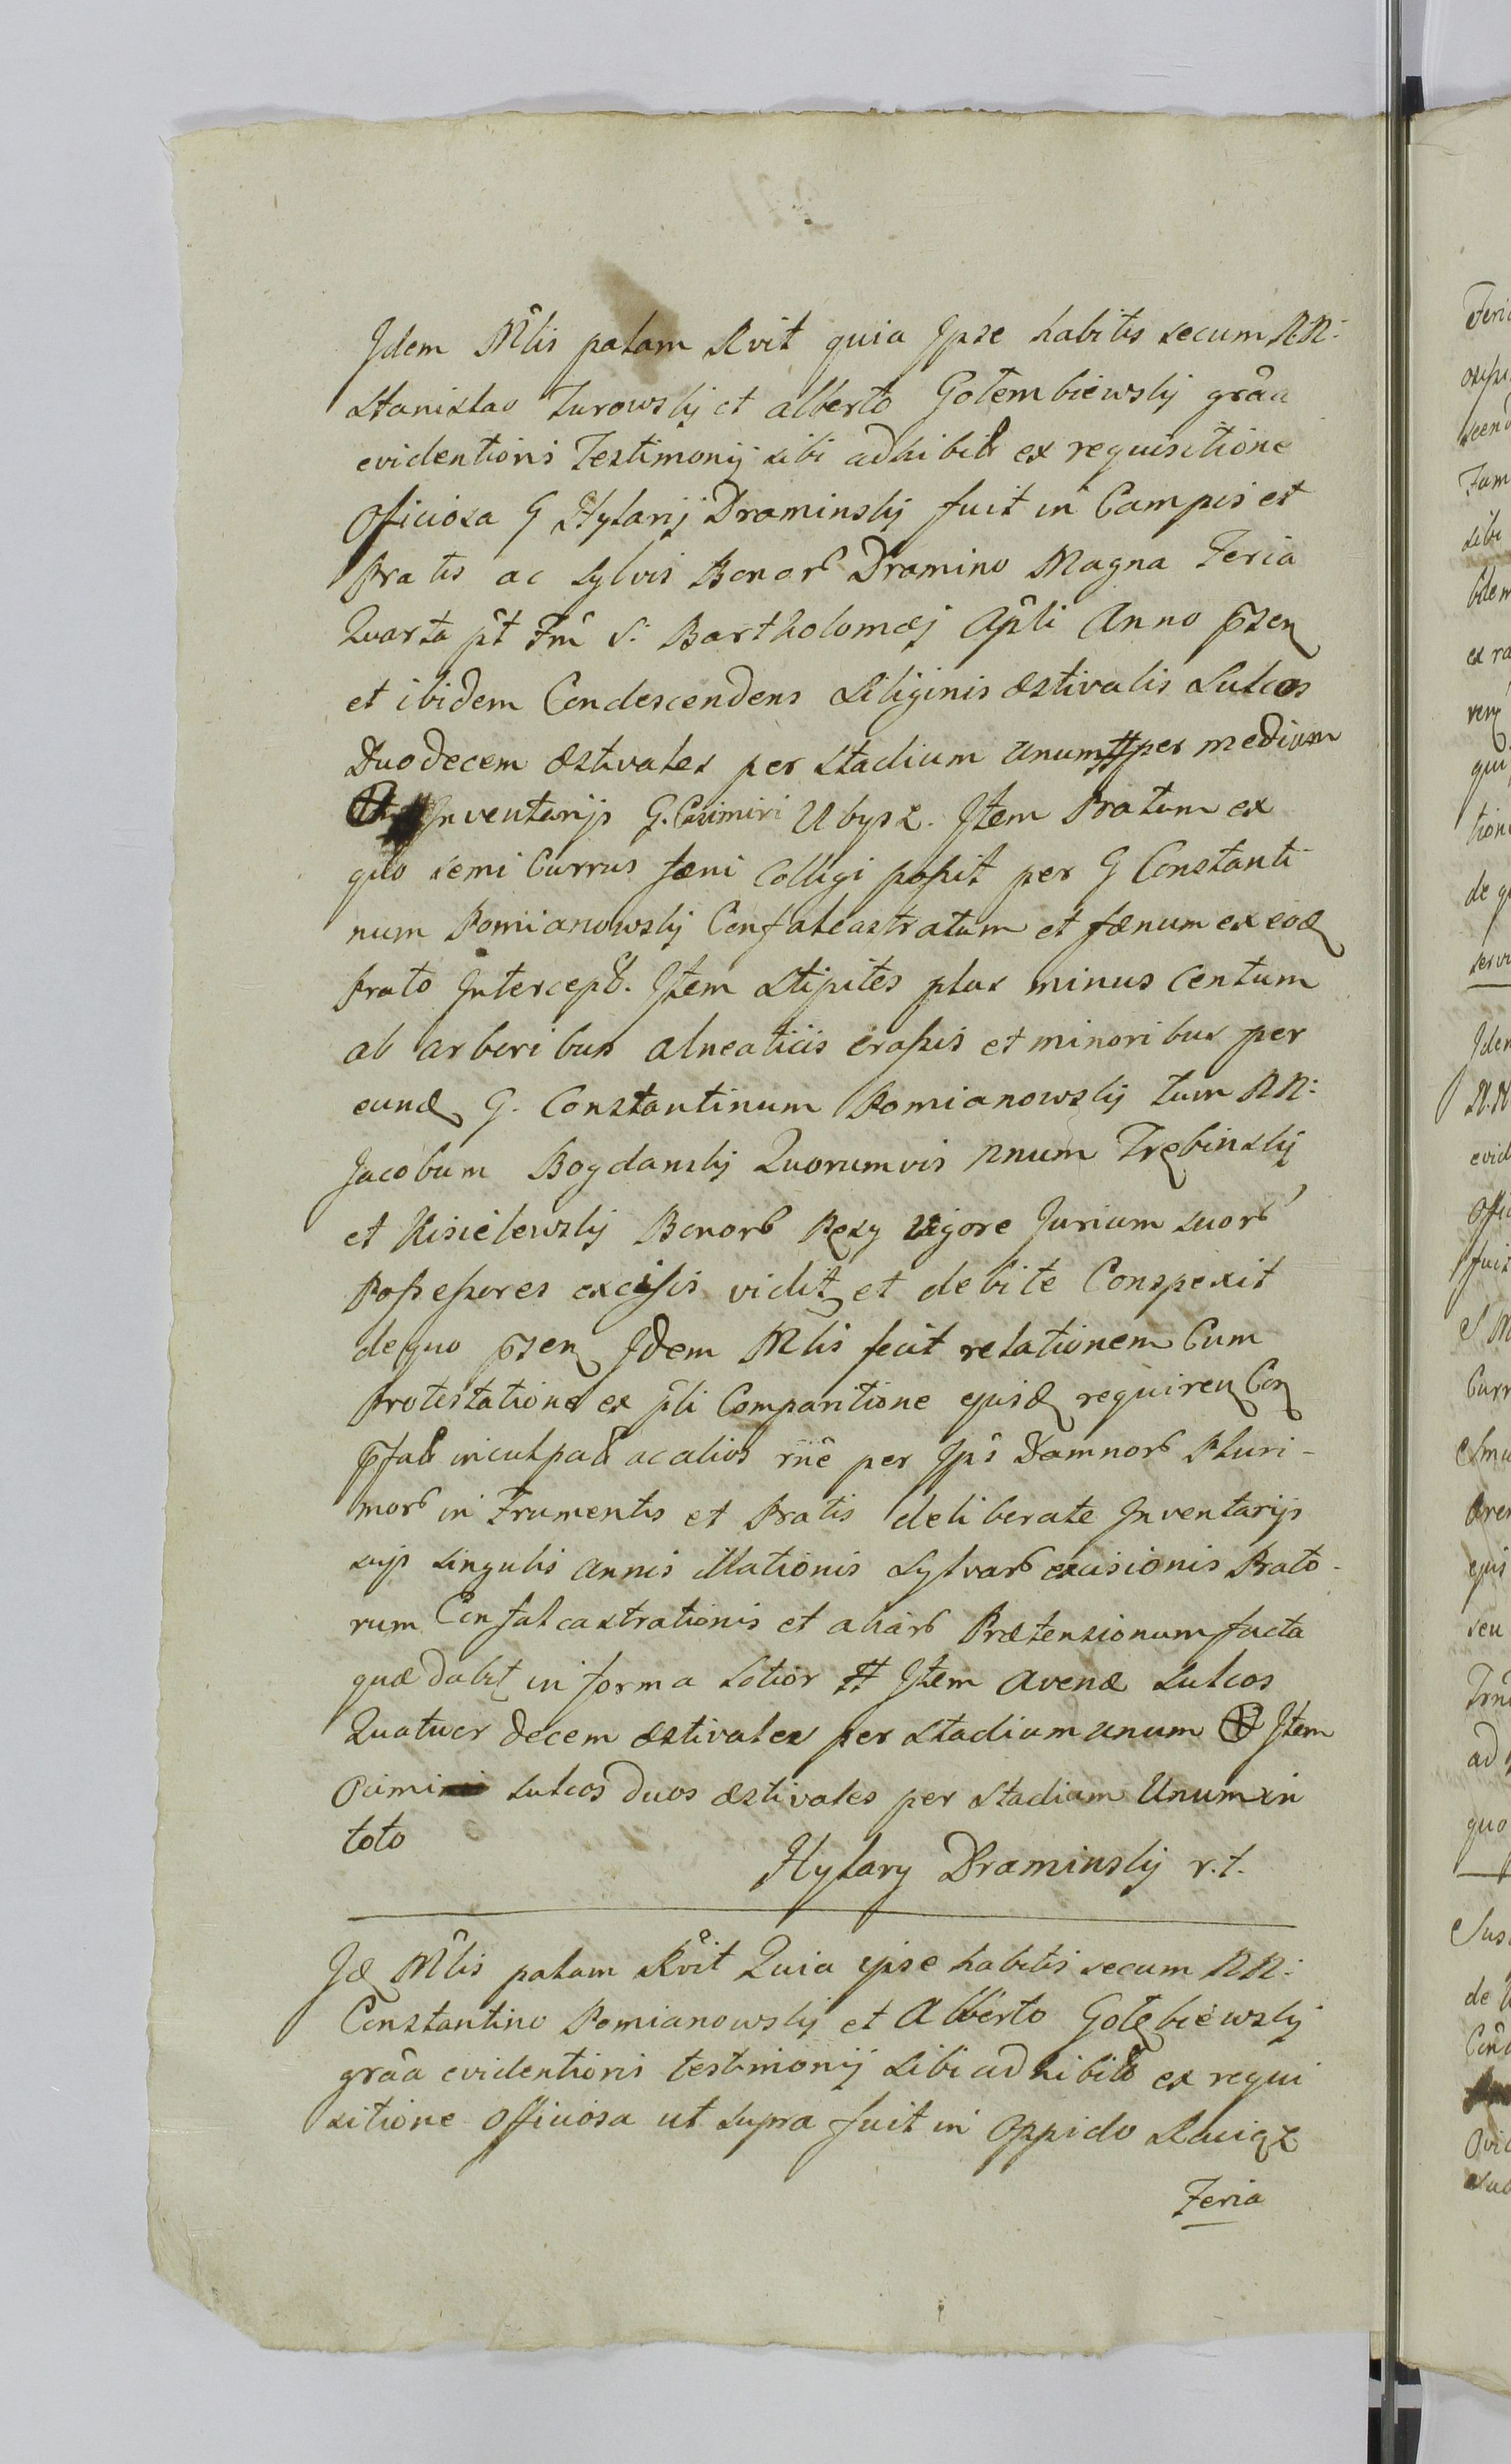 Idem Mlis palam Rvit quia Ipse habitis secum NN:
Stanislao Turowskij et alberto Gotembiewskij grãa
evidentioris Testimonij sibi adhibit ex requisitione
Officiosa G Hylarij Draminskij fuit in Campis et
Pratis ac Sylvis Bonor Dramino Magna Feria
Quarta pt Fm S. Bartholomæj Apli Anno pzen
et ibidem Condescendens Siliginis æstivalis Sulcos
Duodecem æstivales per Stadium unum # per medium
Inventarijs G. Casimiri Ubysz. Item Pratum ex
quo semi Currus fæni Colligi poßit per G Constanti
num Pomianowskij Confalcastratum et fænum ex eod
Prato Intercept. Item Stipites plus minus Centum
ab arboribus alneaticis craßis et minoribus per
eund G. Constantinum Pomianowskij tum NN:
Jacobum Bogdanskij Quorumvis unum Trębinskij
et Kisielewskij Bonor Rezy vigore Jurium suor
Poßeßores excißis vidit et debite Conspexit
de quo pzen Idem Mlis fecit relationem Cum
Protestatione ex pli Comparitione ejusd requiren Con
pfat inculpat ac alios rñe per Ips Damnor Pluri-
mor in Frumentis et Pratis deliberate Inventarijs
suijs singulis annis illationis Sylvar excisionis Prato-
rum Confalcastrationis et aliar Prætensionum facta
quæ dabit in forma Lotior # Item Avenæ Sulcos
Quatuor decem æstivales per Stadium unum Item
Sulcos duos æstivales per Stadium Unum in
toto
Hylary Draminskij r.t.
Id Mlis palam Rvit Quia ipse habitis secum NN:
Constantino Pomianowskij et Alberto Gotębiewskij
grãa evidentioris testimonij Sibi adhibit ex requi
sitione Officiosa ut supra fuit in Oppido Raciąz
Feria